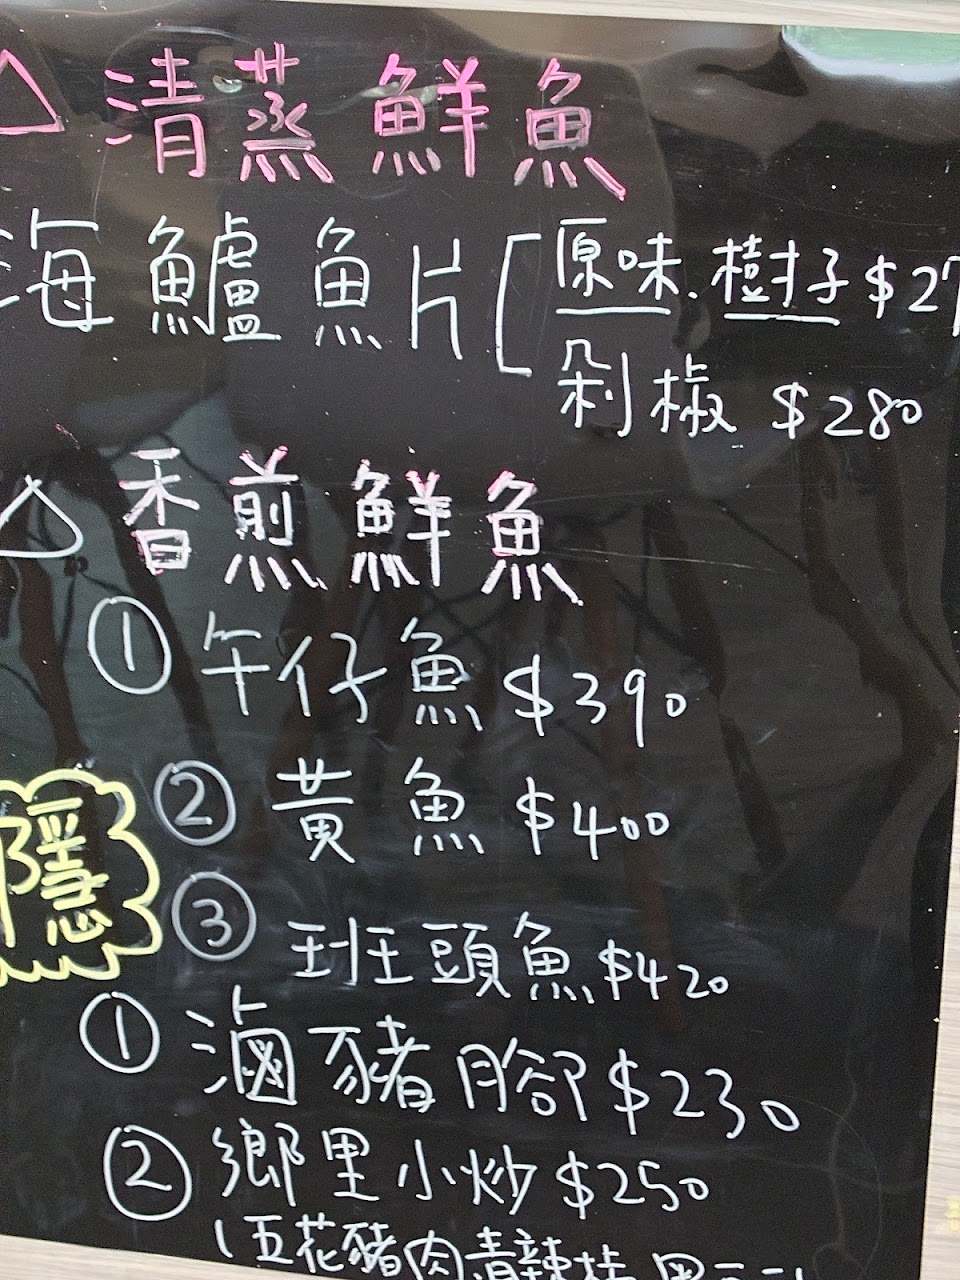 △清蒸鮮魚
海鱸魚片[原味.樹子$27
剁椒 $280
△香煎鮮魚
①午仔魚 $390
②黃魚 $400
隱
③班頭魚 $420
①滷豬腳 $230
②鄉里小炒 $250
(五花豬肉青辣椒